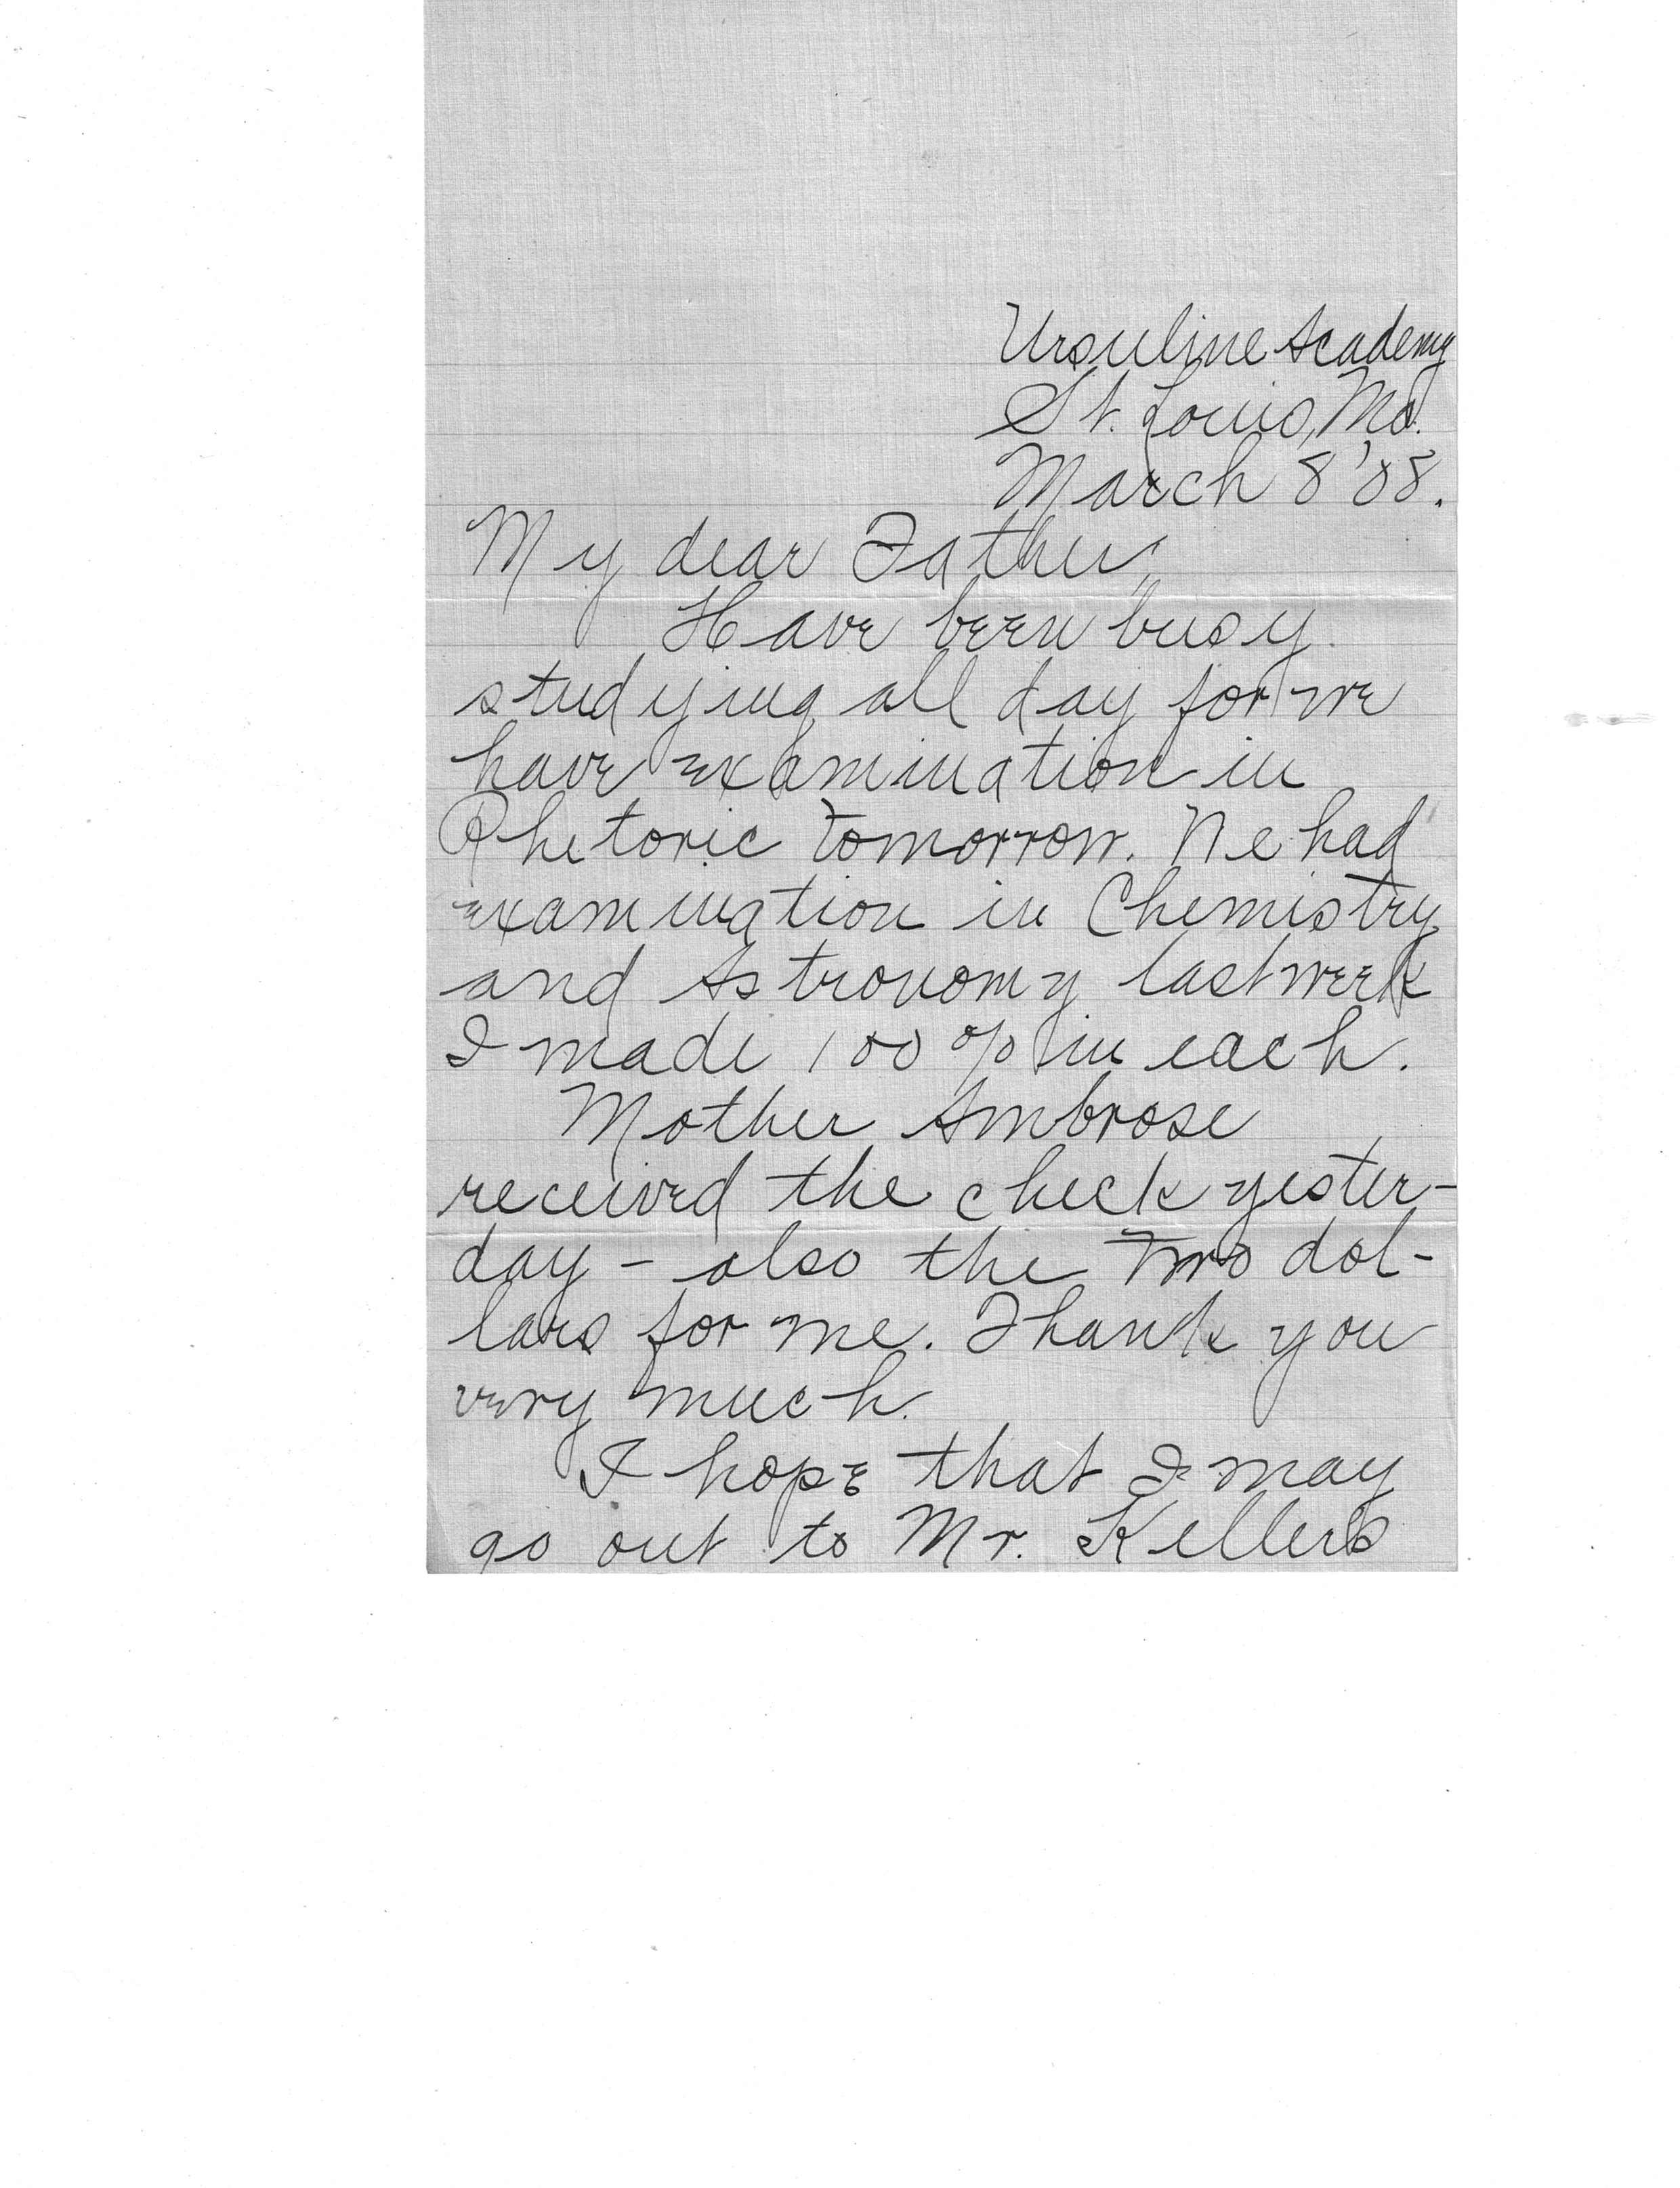 Ursuline Academy
St. Louis, Mo.
March 8 '08.
My dear Father,
Have been busy
studying all day for we
have examination in
Rhetoric tomorrow. We had
examination in Chemistry
and Astronomy last week
I made 100 % in each.
Mother Ambrose
received the check yester-
day - also the two dol-
lars for me. Thank you
very much.
I hope that I may
go out to Mr. Kellers